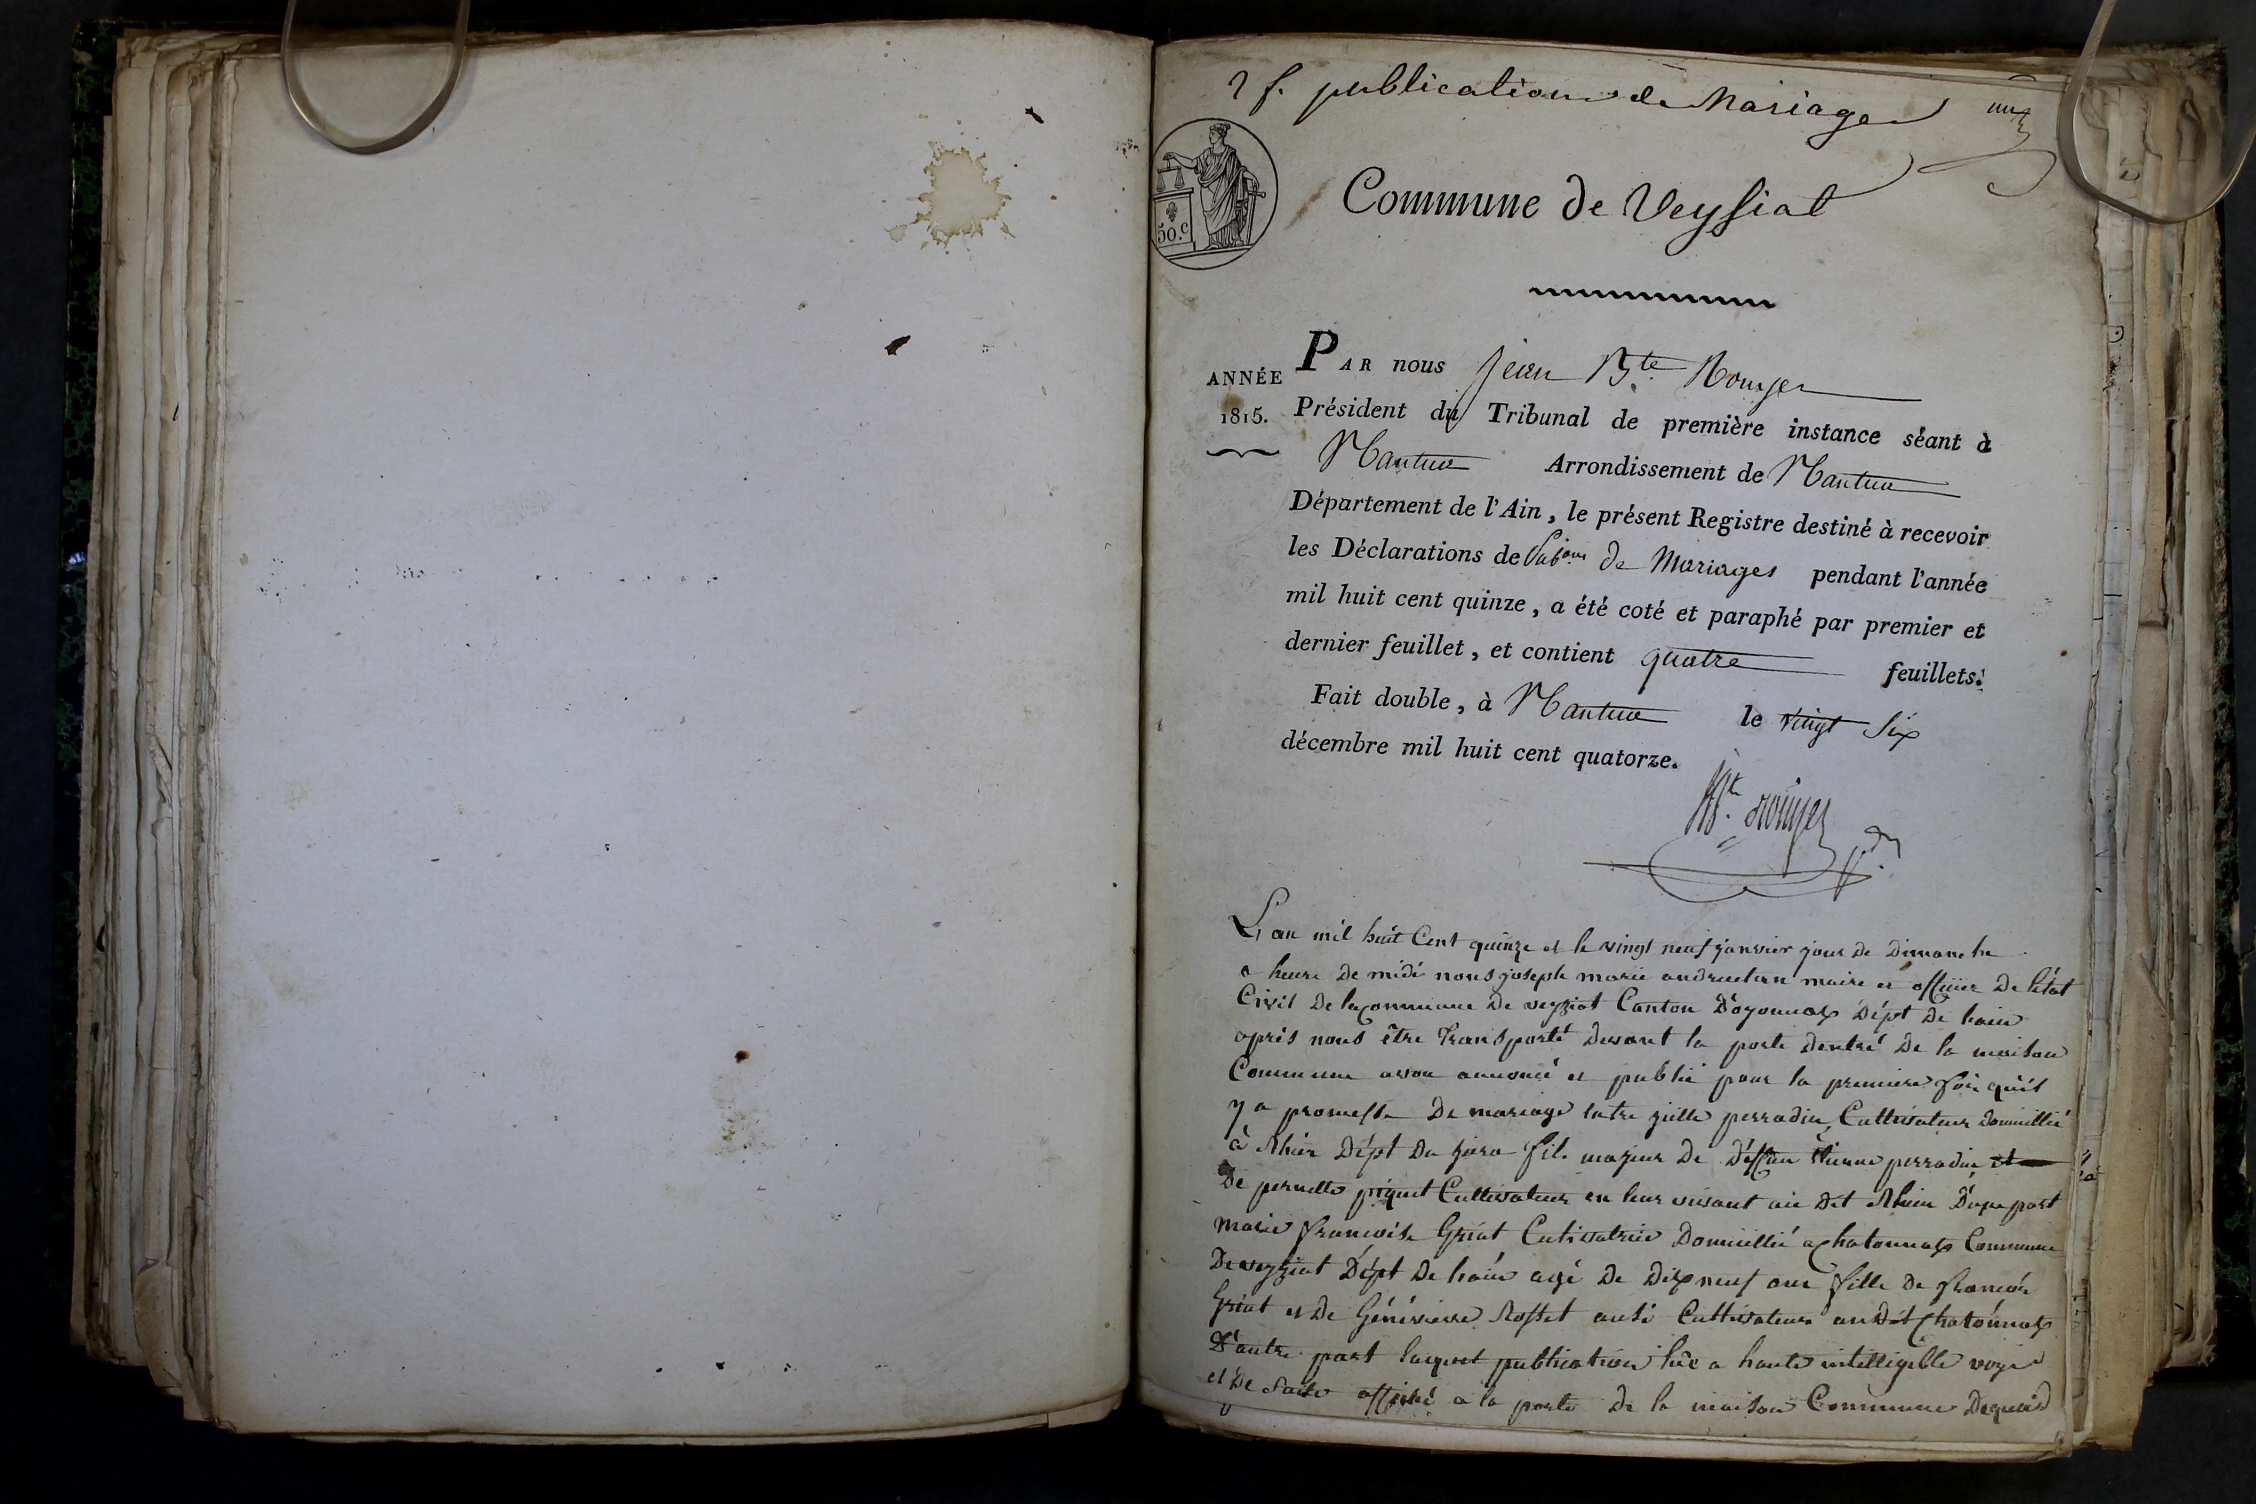 2 f. publications de Mariages un
Commune de Veysiat
50.c
PAR nous Jean Bte Rouyer
ANNÉE
1815.
Président du Tribunal de première instance séant à
Nantua Arrondissement de Nantua
Département de l'Ain, le présent Registre destiné à recevoir
les Déclarations de Pubons de Mariages pendant l'année
mil huit cent quinze, a été coté et paraphé par premier et
dernier feuillet, et contient quatre feuillets.
Fait double, à Nantua le vingt six
décembre mil huit cent quatorze.
Bte. rouyer
L'an mil huit Cent quinze et le vingt neuf janvier jour de Dimanche
a heure De midi nous joseph marie andruetan maire et officier De létat
Civil De la commune De veyziat Canton D'oyonnax Dépt De lain
après nous être transporté Devant la porte Dentré De la maison
Commune avon annoncé et publié pour la premiere fois quil
y a promesse De mariage entre perradin, Cultivateur Domicillié
à Dépt Du jura fils majeur De Déffun perradin et
De pernette piquet Cultivateur en leur vivant au Dit D'une part
marie francoise Griat Cutivatrice Domicillié a chatonnax Commune
De veyziat Dépt De lain agé De Dix neuf ans fille De francois
Griat et De Généviéve Rosset ausi Cultivateurs au Dit Chatonnax
D'autre part laquel publication lüe a haute intelligible voye
et De Suite affiché a la porte De la maison Commune Dequoid